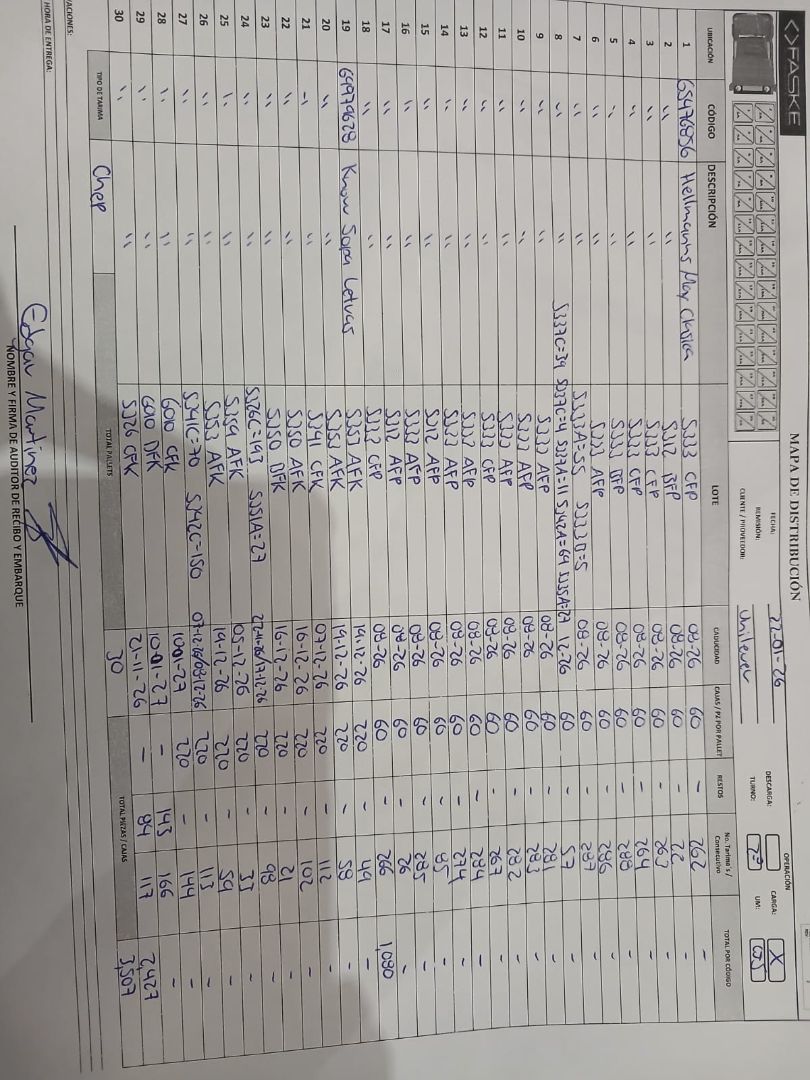 FASKE
MAPA DE DISTRIBUCIÓN
FECHA: 22-01-26
REMISIÓN:
CLIENTE / PROVEEDOR: Unilever
OPERACIÓN
DESCARGA: CARGA: X
TURNO: 2º UM: CJS
UBICACIÓN CÓDIGO DESCRIPCIÓN LOTE CADUCIDAD CAJAS / PZ POR PALLET RESTOS No. Tarima's / Consecutivo TOTAL POR CÓDIGO
1 65476856 Hellmanns May Clasica S333 CFP 08-26 60 - 262 -
2 " " SJ12 BFP 08-26 60 - 22 -
3 " " S333 CFP 08-26 60 - 263 -
4 " " S333 CFP 08-26 60 - 264 -
5 " " S333 BFP 08-26 60 - 288 -
6 " " S333 AFP 08-26 60 - 286 -
7 " " S333A=55 S333B=5 08-26 60 - 287 -
8 " " S337C=39 12-26 60 - 57 -
9 " " S333 AFP 08-26 60 - 281 -
10 " " S333 AFP 08-26 60 - 283 -
11 " " S333 AFP 08-26 60 - 282 -
12 " " S333 CFP 08-26 60 - 267 -
13 " " S333 AFP 08-26 60 - 284 -
14 " " S333 AFP 08-26 60 - 274 -
15 " " SJ12 AFP 08-26 60 - 95 -
16 " " S333 AFP 08-26 60 - 285 -
17 " " SJ12 AFP 08-26 60 - 26 -
18 " " S333 CFP 08-26 60 - 266 1,080
19 69979628 Knorr Sopa Letras S353 AFK 19-12-26 220 - 49 -
20 " " S353 AFK 19-12-26 220 - 58 -
21 " " S341 CFK 07-12-26 220 - 112 -
22 " " S350 AFK 16-12-26 220 - 102 -
23 " " S350 BFK 16-12-26 220 - 21 -
24 " " S326C=193 S351A=27 22-11-26/17-12-26 220 - 98 -
25 " " S354 AFK 05-12-26 220 - 33 -
26 " " S353 AFK 19-12-26 220 - 59 -
27 " " S341C=70 S342C=150 07-12-26/08-12-26 220 - 113 -
28 " " 6010 CFK 10-01-27 220 - 144 -
29 " " 6010 DFK 10-01-27 - 143 166 -
30 " " S326 CFK 21-11-26 - 84 117 2,427
TIPO DE TARIMA Chep TOTAL PALLETS 30 TOTAL PIEZAS / CAJAS 3,507
VACIONES:
HORA DE ENTREGA:
Edgar Martinez
NOMBRE Y FIRMA DE AUDITOR DE RECIBO Y EMBARQUE